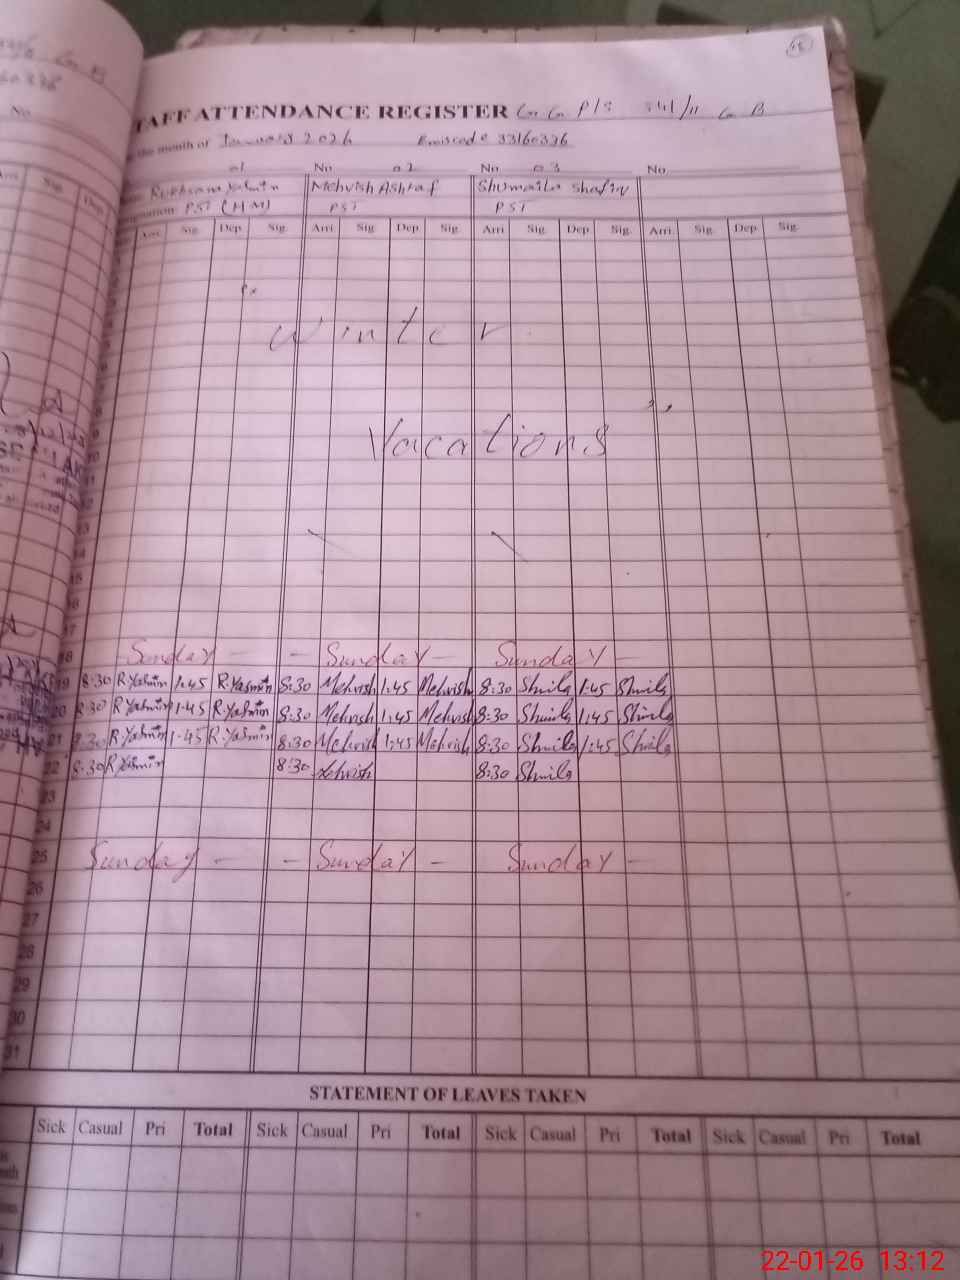 STAFF ATTENDANCE REGISTER G. G P/S 341/11 G B
the month of January 2026 Emiscode 33160336
01 No. 02 No. 03 No.
Rukhsana Yasmin Mehvish Ashraf Shumaila Shafiq
PST (HM) PST PST
Arri. Sig. Dep Sig. Arri Sig. Dep Sig. Arri Sig. Dep Sig. Arri. Sig. Dep Sig.
Winter
9
Vacations
10
11
12
13
14
15
16
17
18 Sunday — — Sunday — Sunday —
19 8:30 R.Yasmin 1:45 R.Yasmin 8:30 Mehvish 1:45 Mehvish 8:30 Shmila 1:45 Shmila
20 8:30 R.Yasmin 1:45 R.Yasmin 8:30 Mehvish 1:45 Mehvish 8:30 Shmila 1:45 Shmila
21 8:30 R.Yasmin 1:45 R.Yasmin 8:30 Mehvish 1:45 Mehvish 8:30 Shmila 1:45 Shmila
22 8:30 R.Yasmin 8:30 Mehvish 8:30 Shmila
23
24
25 Sunday — — Sunday — Sunday —
26
27
28
29
30
31
STATEMENT OF LEAVES TAKEN
Sick Casual Pri Total Sick Casual Pri Total Sick Casual Pri Total Sick Casual Pri Total
22-01-26 13:12